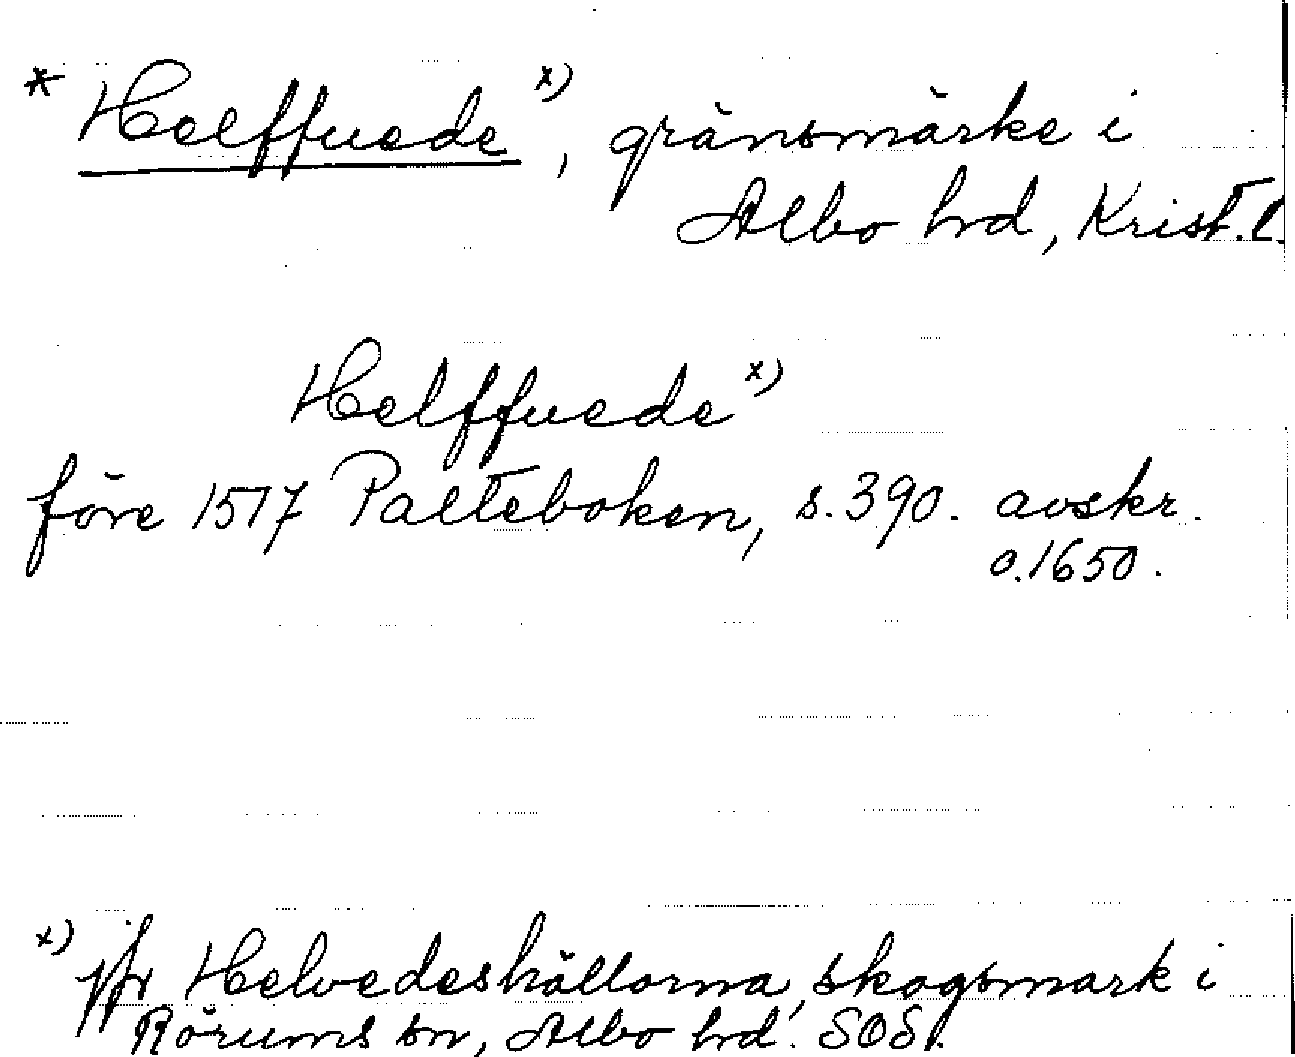 * Helffuede x), gränsmärke i
Albo hrd, Krist. l.
Helffuede x)
före 1517 Palteboken, s. 390. avskr.
o. 1650.
x) jfr Helvedeshällorna, skogsmark i
Rörums sn, Albo hrd. SOS.